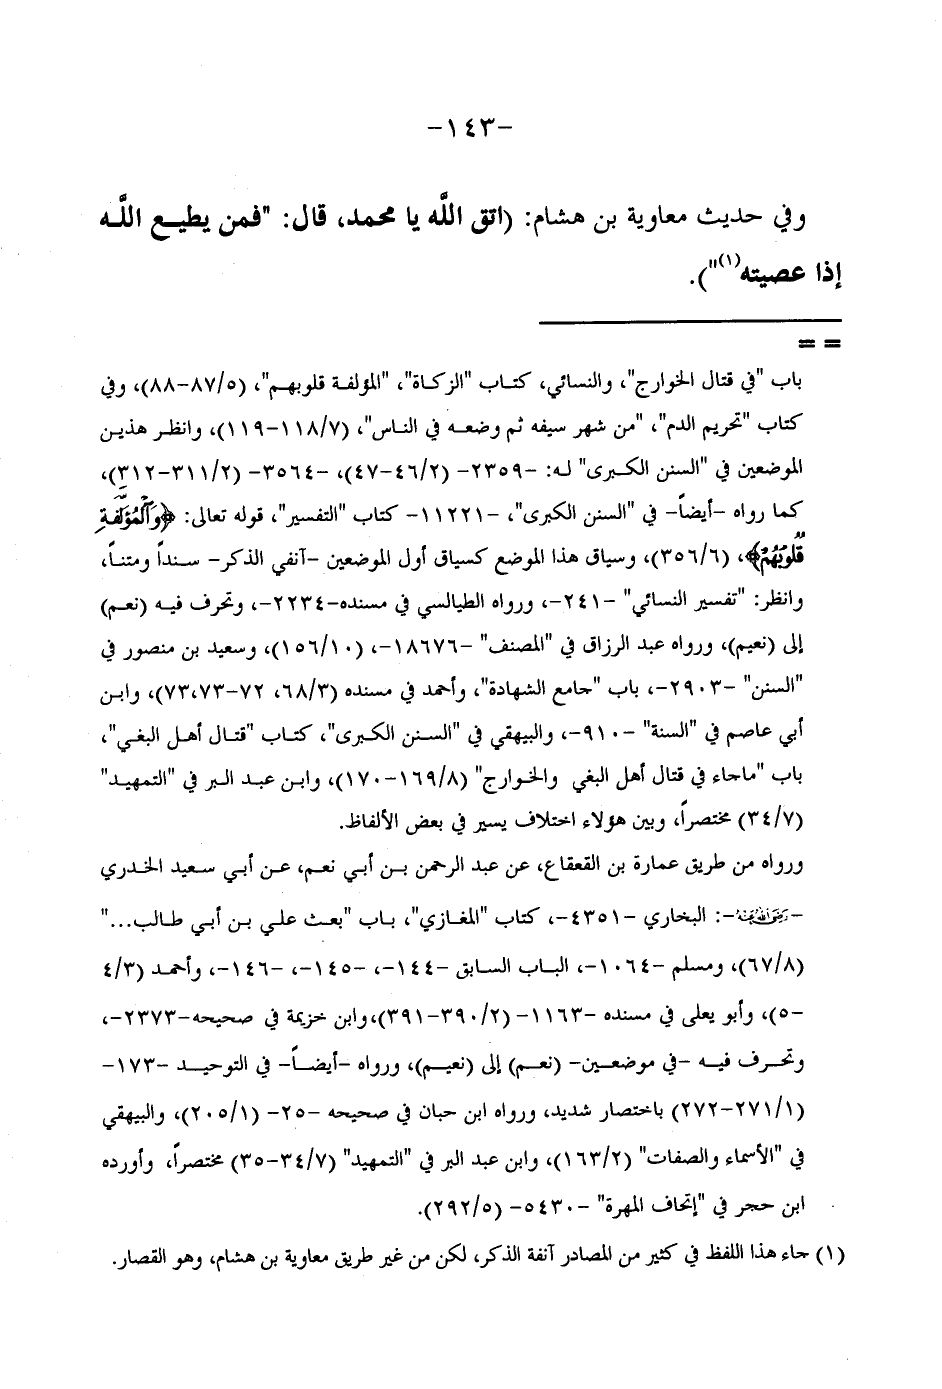 -١٤٣-
وفي حديث معاوية بن هشام: (اتق اللَّه يا محمد، قال: "فمن يطيـع اللَّـه
إذا عصيته(١)").
= =
باب "في قتال الخوارج"، والنسائي، كتـاب "الزكـاة"، "المؤلفـة قلوبهـم"، (٨٧/٥-٨٨)، وفي
كتاب "تحريم الدم"، "من شهر سيفه ثم وضعـه في النـاس"، (١١٨/٧-١١٩)، وانظـر هذيـن
الموضعين في "السنن الكـبرى" لـه: -٢٣٥٩- (٤٦/٢-٤٧)، -٣٥٦٤- (٣١١/٢-٣١٢)،
كما رواه -أيضاً- في "السنن الكبرى"، -١١٢٢١- كتاب "التفسير"، قوله تعالى: ﴿وَٱلْمُؤَلَّفَةِ
قُلُوبُهُمْ﴾، (٣٥٦/٦)، وسياق هذا الموضع كسياق أول الموضعين -آنفي الذكر- سـنداً ومتنـاً،
وانظر: "تفسير النسائي" -٢٤١-، ورواه الطيالسي في مسنده-٢٢٣٤-، وتحرف فيـه (نعـم)
إلى (نعيم)، ورواه عبد الرزاق في "المصنف" -١٨٦٧٦-، (١٥٦/١٠)، وسعيد بن منصور في
"السنن" -٢٩٠٣-، باب "جامع الشهادة"، وأحمد في مسنده (٦٨/٣، ٧٢-٧٣،٧٣)، وابـن
أبي عاصم في "السنة" -٩١٠-، والبيهقي في "السـنن الكـبرى"، كتـاب "قتـال أهـل البغـي"،
باب "ماجاء في قتال أهل البغي والخوارج" (١٦٩/٨-١٧٠)، وابـن عبـد الـبر في "التمهيـد"
(٣٤/٧) مختصراً، وبين هؤلاء اختلاف يسير في بعض الألفاظ.
ورواه من طريق عمارة بن القعقاع، عن عبد الرحمن بـن أبـي نعـم، عـن أبـي سـعيد الخـدري
-رضي الله عنه-: البخاري -٤٣٥١-، كتاب "المغازي"، بـاب "بعـث علـي بـن أبـي طـالب..."
(٦٧/٨)، ومسلم -١٠٦٤-، البـاب السـابق -١٤٤-، -١٤٥-، -١٤٦-، وأحمـد (٤/٣
-٥)، وأبو يعلى في مسنده -١١٦٣- (٣٩٠/٢-٣٩١)،وابن خزيمة في صحيحه-٢٣٧٣-،
وتحـرف فيـه -في موضعـين- (نعـم) إلى (نعيـم)، ورواه -أيضـاً- في التوحيـد -١٧٣-
(٢٧١/١-٢٧٢) باختصار شديد، ورواه ابن حبان في صحيحه -٢٥- (٢٠٥/١)، والبيهقي
في "الأسماء والصفات" (١٦٣/٢)، وابن عبد البر في "التمهيد" (٣٤/٧-٣٥) مختصراً، وأورده
ابن حجر في "إتحاف المهرة" -٥٤٣٠- (٢٩٢/٥).
(١) جاء هذا اللفظ في كثير من المصادر آنفة الذكر، لكن من غير طريق معاوية بن هشام، وهو القصار.